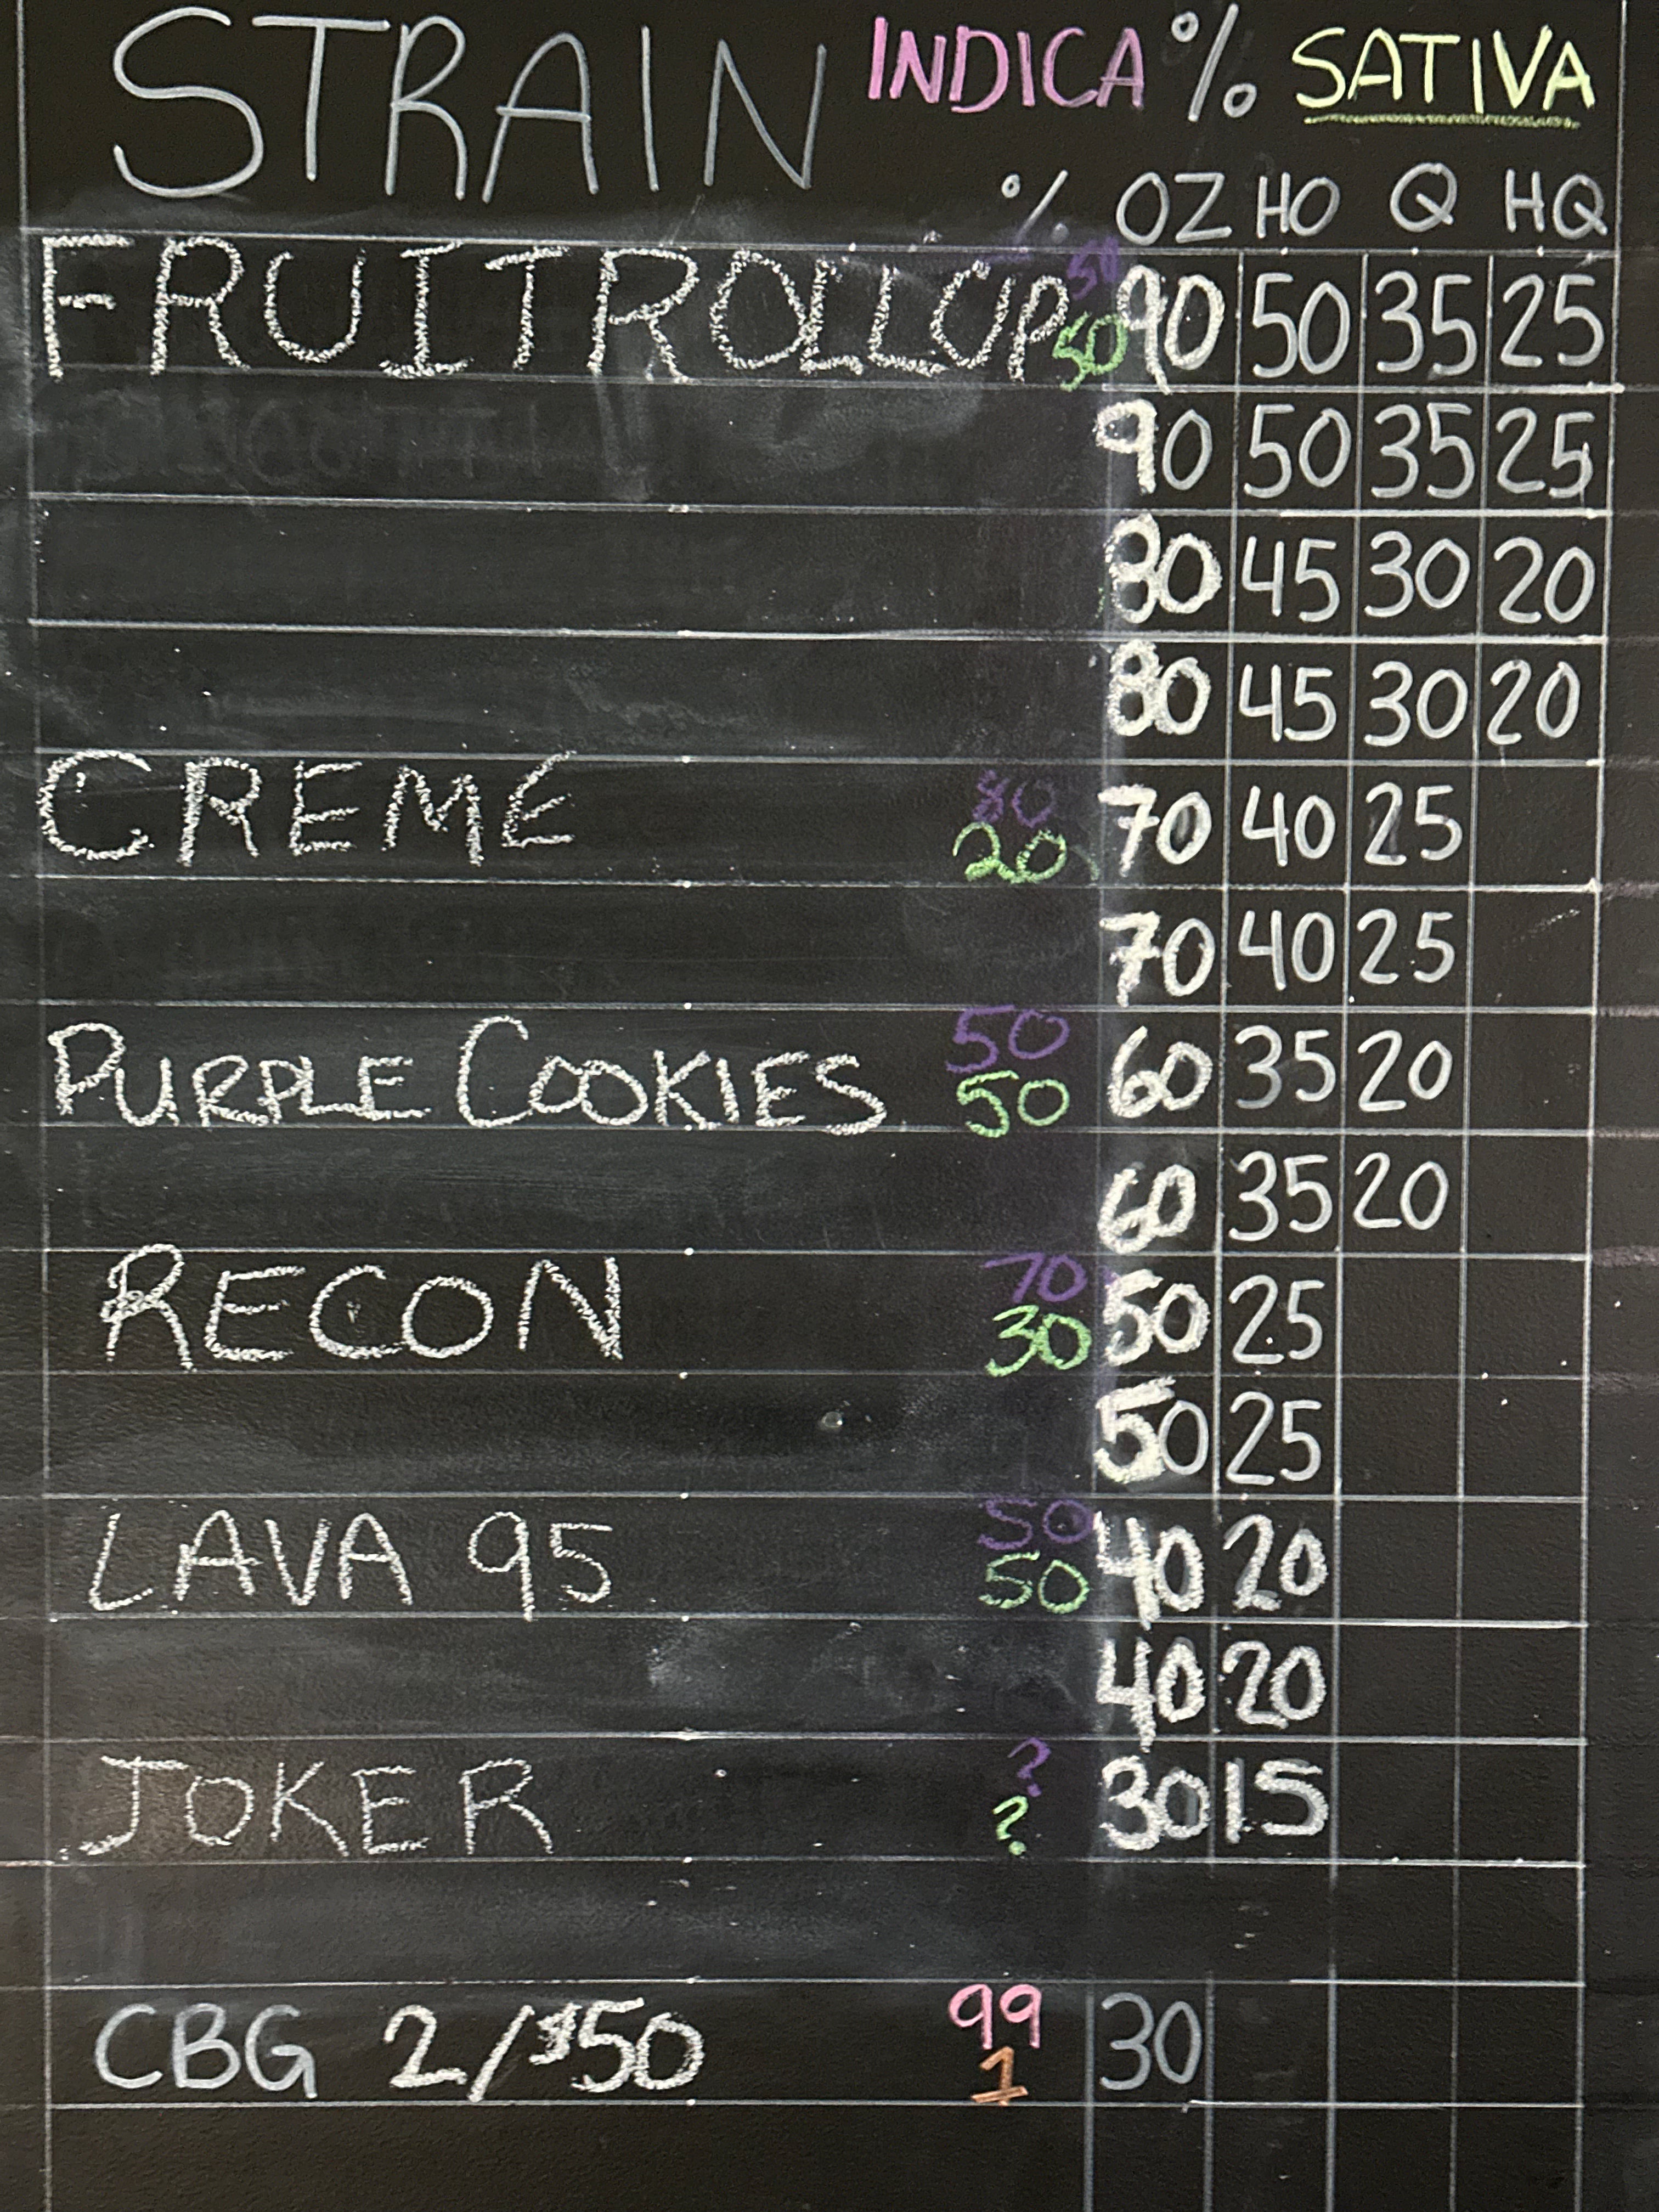 STRAIN INDICA % SATIVA
% OZ HO Q HQ
FRUITROLLUP 50 50 90 50 35 25
90 50 35 25
80 45 30 20
80 45 30 20
CREME 80 20 70 40 25
70 40 25
PURPLE COOKIES 50 50 60 35 20
60 35 20
RECON 70 30 50 25
50 25
LAVA 95 50 50 40 20
40 20
JOKER ? ? 30 15
CBG 2/$50 99 1 30